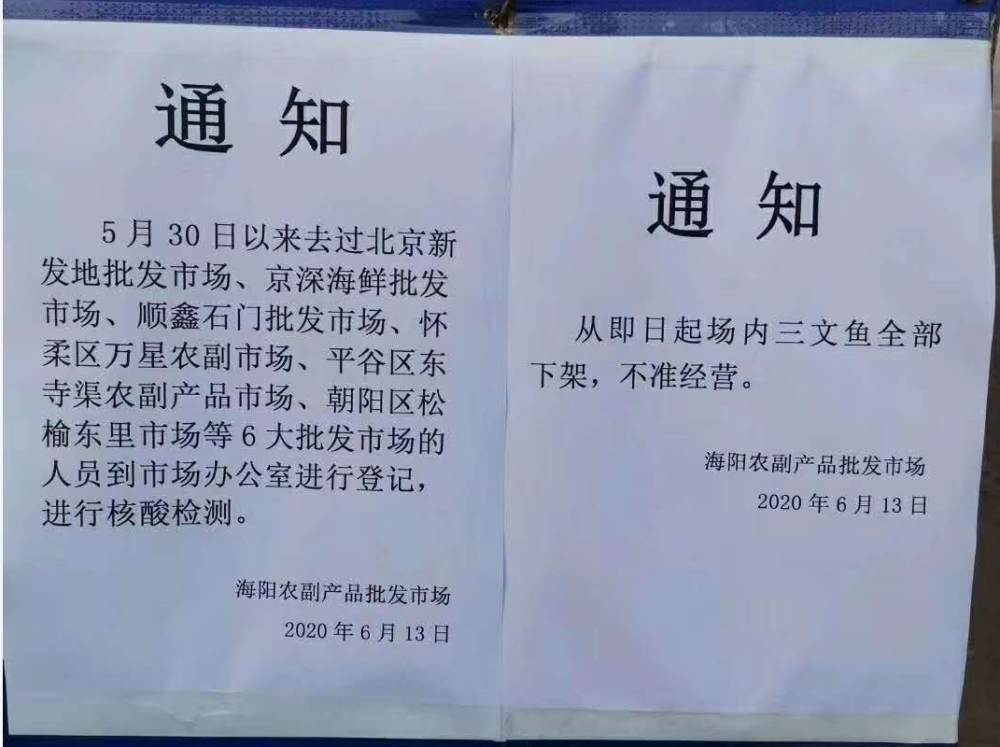 通知
5月30日以来去过北京新
发地批发市场、京深海鲜批发
市场、顺鑫石门批发市场、怀
柔区万星农副市场、平谷区东
寺渠农副产品市场、朝阳区松
榆东里市场等6大批发市场的
人员到市场办公室进行登记，
进行核酸检测。
海阳农副产品批发市场
2020年6月13日
通知
从即日起场内三文鱼全部
下架，不准经营。
海阳农副产品批发市场
2020年6月13日